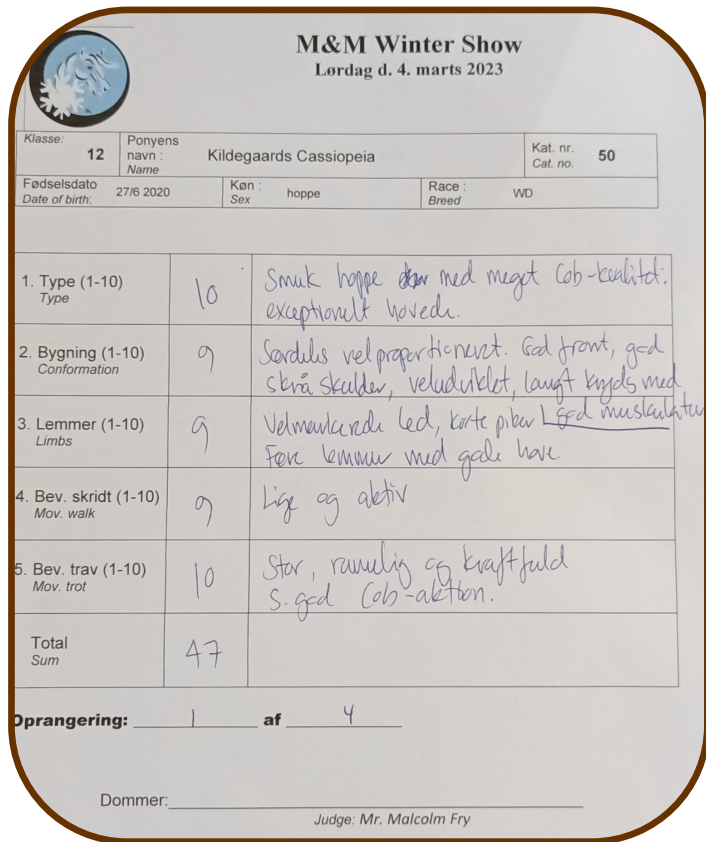 M&M Winter Show
Lørdag d. 4. marts 2023
Klasse:
12
Ponyens
navn :
Name
Kildegaards Cassiopeia
Kat. nr.
Cat. no.
50
Fødselsdato
Date of birth:
27/6 2020
Køn :
Sex
hoppe
Race :
Breed
WD
1. Type (1-10)
Type
10
Smuk hoppe med meget Cob-kvalitet.
exceptionelt hoved.
2. Bygning (1-10)
Conformation
9
Særdeles velproportioneret. God front, god
skrå skulder, veludviklet, langt kryds med
god muskulatur
3. Lemmer (1-10)
Limbs
9
Velmarkerede led, korte piber
Føre lemmer med gode hove.
4. Bev. skridt (1-10)
Mov. walk
9
Lige og aktiv
5. Bev. trav (1-10)
Mov. trot
10
Stor, rummelig og kraftfuld
S. god Cob-aktion.
Total
Sum
47
Oprangering: 1 af 4
Dommer:
Judge: Mr. Malcolm Fry